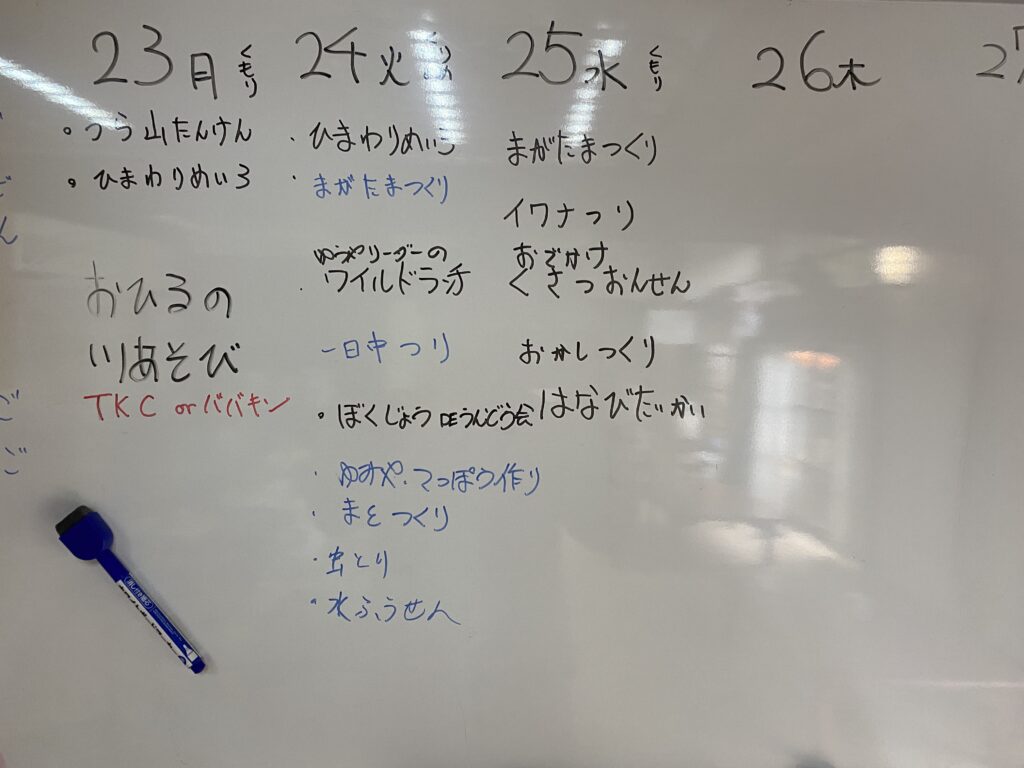 23月 くもり
・つら山たんけん
・ひまわりめいろ
おひるの
川あそび
TKC orババキン
24火
・ひまわりめいろ
・まがたまつくり
ゆうやリーダーの
・ワイルドランチ
一日中つり
・ぼくじょうDEうんどう会
・ゆみや、てっぽう作り
・まとつくり
・虫とり
・水ふうせん
25水 くもり
まがたまつくり
イワナつり
おでかけ
くさつおんせん
おかしつくり
はなびたいかい
26木
27